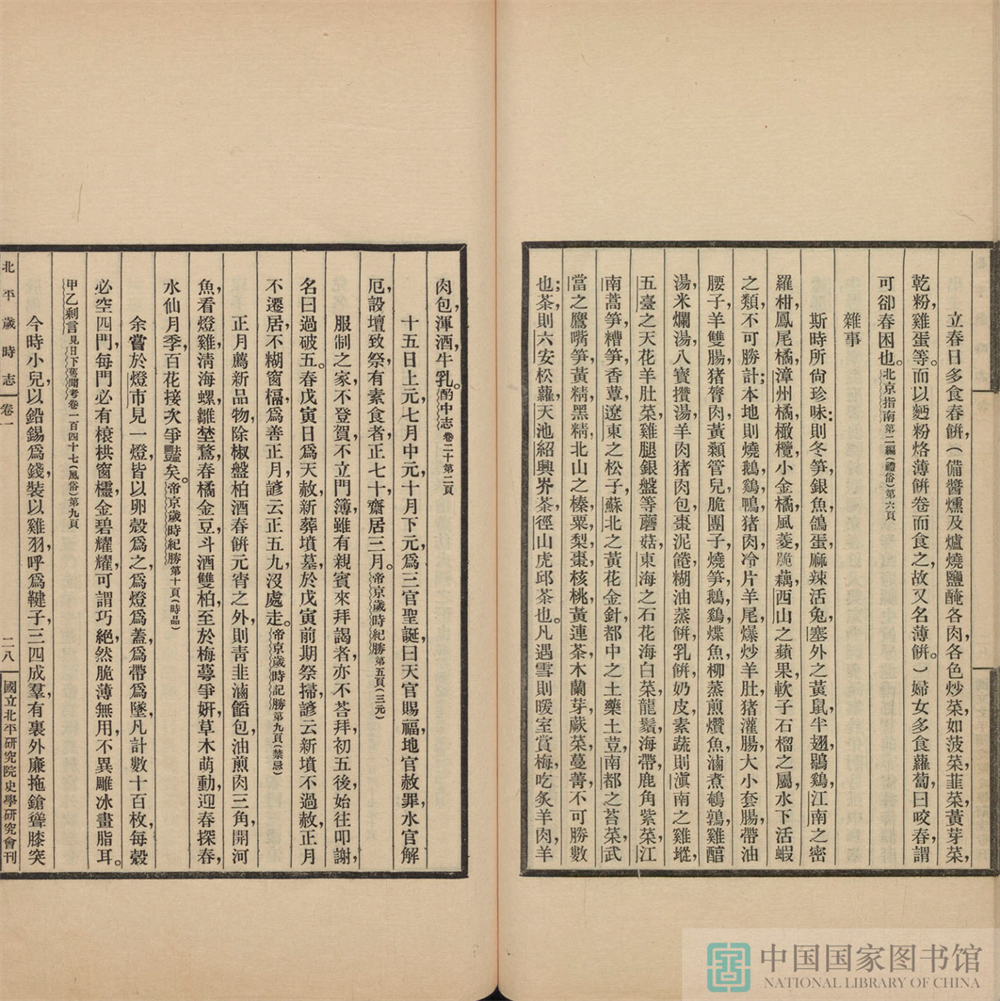 立春日多食春餅，（備醬燻及爐燒鹽醃各肉各色炒菜如菠菜韭菜黃芽菜，
乾粉雞蛋等。而以麪粉烙薄餅卷而食之，故又名薄餅。）婦女多食蘿蔔曰咬春，謂
可卻春困也。北京指南第二編（禮俗）第六頁
雜事
斯時所尚珍味：則冬笋，銀魚，鴿蛋，麻辣活兔；塞外之黃鼠，半翅，鶡鷄；江南之密
羅柑，鳳尾橘，漳州橘，橄欖，小金橘，風菱，脆藕；西山之蘋果，軟子石榴之屬，水下活蝦
之類，不可勝計；本地則燒鵝，鷄，鴨，猪肉，冷片羊尾，爆炒羊肚，猪灌腸，大小套腸，帶油
腰子，羊雙腸，猪膂肉，黃顙管兒，脆團子，燒笋鵝，鷄，煠魚，柳蒸煎爦魚，滷煮鵪鶉，雞醢
湯，米爛湯，八寶攢湯，羊肉猪肉包，棗泥餣，糊油蒸餅，乳餅，奶皮；素蔬則滇南之雞㙡，
五臺之天花羊肚菜，雞腿銀盤等蘑菇，東海之石花海白菜，龍鬚，海帶，鹿角，紫菜；江
南蒿笋，糟笋，香蕈，遼東之松子，蘇北之黃花金針，都中之土藥土荳，南都之苔菜，武
當之鷹嘴笋，黃精，黑精，北山之榛，栗，梨，棗，核桃，黃連茶，木蘭芽，蕨菜，蔓菁，不可勝數
也；茶則六安松蘿，天池，紹興岕茶，徑山虎邱茶也。凡遇雪，則暖室賞梅，吃炙羊肉，羊
肉包，渾酒，牛乳。酌中志卷二十第二頁
十五日上元，七月中元，十月下元，爲三官聖誕，曰天官賜福，地官赦罪，水官解
厄，設壇致祭，有素食者，正七十齋居三月。帝京歲時紀勝第五頁（三元）
服制之家，不登賀，不立門簿，雖有親賓來拜謁者，亦不荅拜，初五後始往叩謝，
名曰過破五。春戊寅日爲天赦，新葬墳墓，於戊寅前期祭掃，諺云新墳不過赦，正月
不遷居，不糊窗槅爲善，正月諺云正五九沒處走。帝京歲時記勝第九頁（禁忌）
正月薦新品物，除椒盤柏酒春餅元宵之外，則青韭滷饀包，油煎肉三角，開河
魚，看燈雞，清海螺，雛埜鶩，春橘金豆，斗酒雙柏，至於梅蕚爭妍，草木萌動，迎春探春，
水仙月季，百花接次爭豔矣。帝京歲時紀勝第十頁（時品）
余嘗於燈市見一燈，皆以卵殼爲之，爲燈，爲蓋，爲帶，爲墜，凡計數十百枚，每殼
必空四門，每門必有榱栱窗櫺，金碧耀耀，可謂巧絕，然脆薄無用，不異雕冰畫脂耳。
甲乙剩言見日下舊聞考卷一百四十七（風俗）第九頁
今時小兒以鉛錫爲錢，裝以雞羽，呼爲鞬子，三四成羣，有裏外廉，拖鎗，聳膝，突
北平歲時志　卷一　二八　國立北平研究院史學研究會刊
中国国家图书馆
NATIONAL LIBRARY OF CHINA